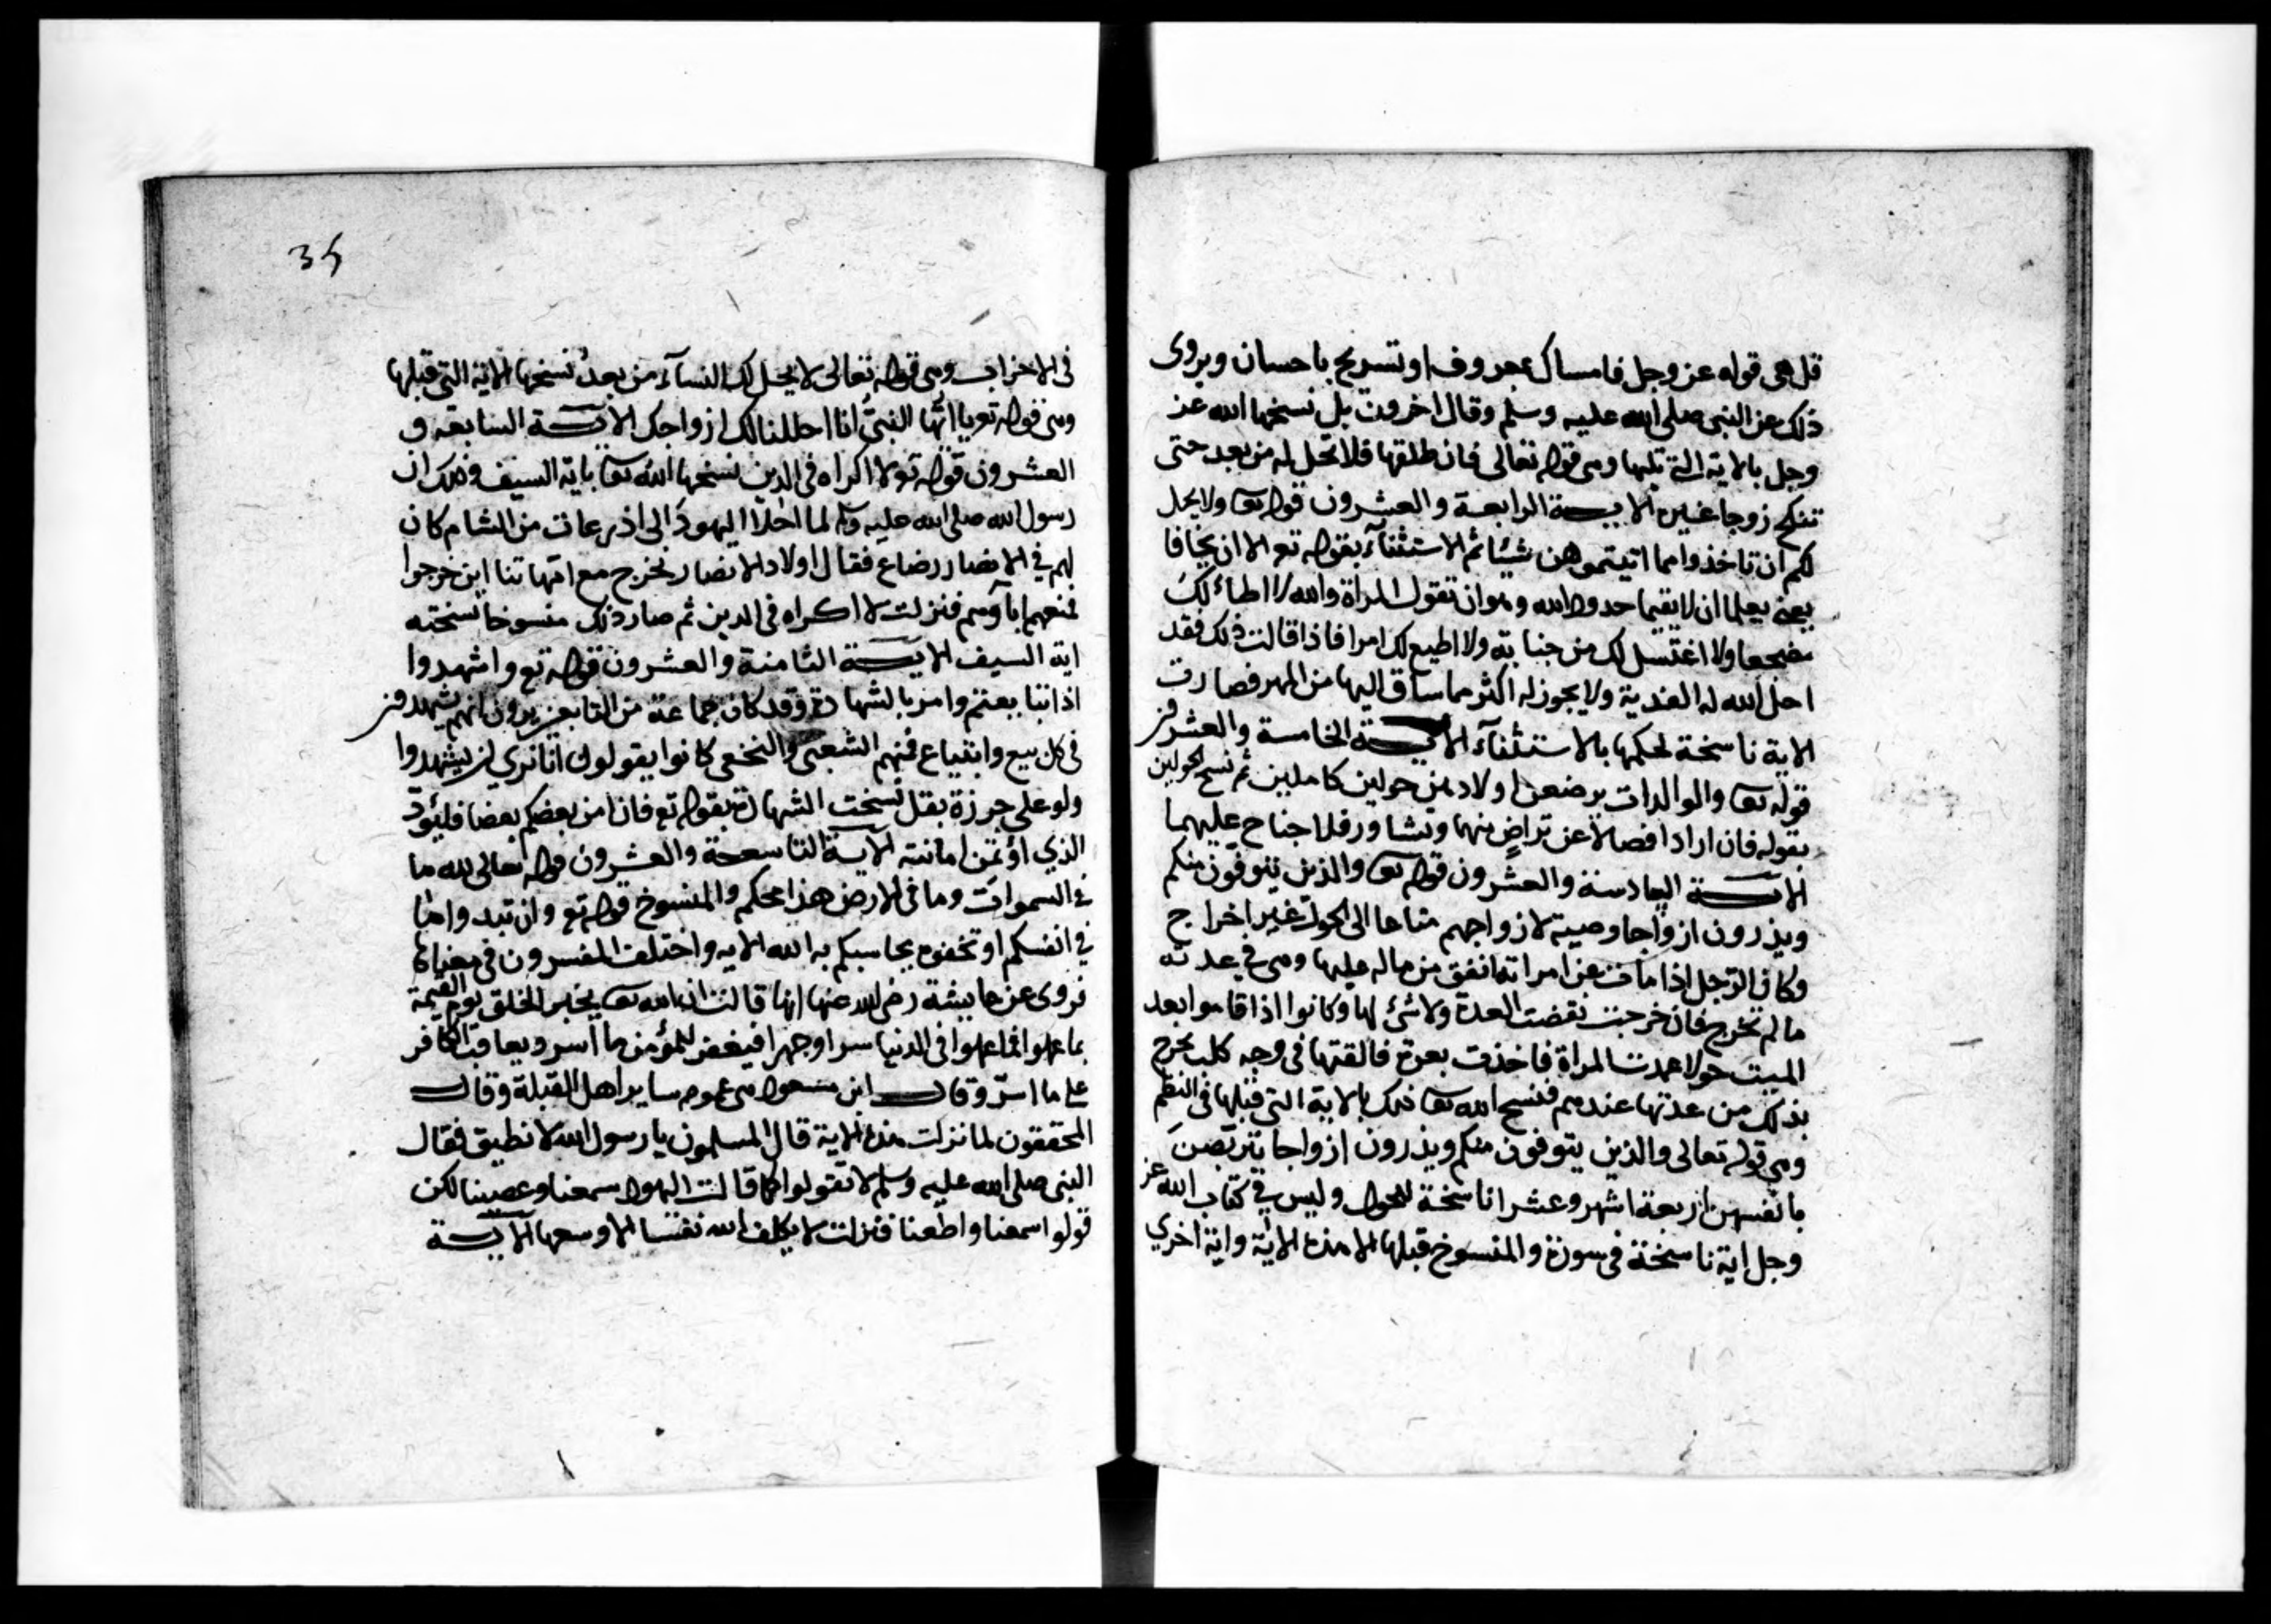 قل هي قوله عز وجل فامساك بمعروف او تسريح باحسان ويروى
ذلك عن النبي صلى الله عليه وسلم وقال اخرون بل نسخها الله عز
وجل بالاية التي تليها وهي قوله تعالى فان طلقها فلا تحل له من بعد حتى
تنكح زوجا غيره الاية الرابعة والعشرون قوله تعا ولا يحل
لكم ان تاخذوا مما اتيتموهن شيئا ثم الاستثناء بقوله تع الا ان يخافا
يعني يعلما ان لا يقيما حدود الله وهو ان تقول المراة والله لا اطاء لك
مضجعا ولا اغتسل لك من جنابة ولا اطيع لك امرا فاذا قالت ذلك فقد
احل الله له الفدية ولا يجوز له اكثر مما ساق اليها من المهر فصارت
الاية ناسخة لحكمها بالاستثناء الاية الخامسة والعشرون
قوله تعا والوالدات يرضعن اولادهن حولين كاملين ثم نسخ الحولين
بقوله فان ارادا فصالا عن تراض منهما وتشاور فلا جناح عليهما
الاية السادسة والعشرون قوله تعا والذين يتوفون منكم
ويذرون ازواجا وصية لازواجهم متاعا الى الحول غير اخراج
وكان الرجل اذا مات عن امراته انفق من ماله عليها وهي في عدته
ما لم تخرج فان خرجت نقضت العدة ولا شئ لها وكانوا اذا قاموا بعد
الميت حولا عمدت المراة فاخذت بعرة فالقتها في وجه كلب تخرج
بذلك من عدتها عندهم فنسخ الله تعا ذلك بالاية التي قبلها في النظم
وهي قوله تعالى والذين يتوفون منكم ويذرون ازواجا يتربصن
بانفسهن اربعة اشهر وعشرا ناسخة للحول وليس في كتاب الله عز
وجل اية ناسخة في سورة والمنسوخ قبلها الا هذه الاية واية اخري
35
في الاحزاب وهي قوله تعالى لا يحل لك النساء من بعد نسخها الاية التي قبلها
وهي قوله تع يا ايها النبي انا احللنا لك ازواجك الاية السابعة و
العشرون قوله تع لا اكراه في الدين نسخها الله تعا باية السيف وذلك ان
رسول الله صلى الله عليه وسلم لما اجلا اليهود الى اذرعات من الشام كان
لهم في الانصار رضاع فقال اولاد الانصار نخرج مع امهاتنا اين خرجوا
فمنعهم اباؤهم فنزلت لا اكراه في الدين ثم صار ذلك منسوخا نسخته
اية السيف الاية الثامنة والعشرون قوله تع واشهدوا
اذا تبايعتم وامر بالشهادة وقد كان جماعة من التابعين يرون انهم يشهدون
في كل بيع وابتياع فمنهم الشعبي والنخعي كانوا يقولون انا نري ان يشهدوا
ولو على جرزة بقل نسخت الشهادة بقوله تع فان امن بعضكم بعضا فليؤد
الذي اؤتمن امانته الاية التاسعة والعشرون قوله تعالى لله ما
في السموات وما في الارض هذا محكم والمنسوخ قوله تع وان تبدوا ما
في انفسكم او تخفوه يحاسبكم به الله الاية واختلف المفسرون في معناها
فروى عن عايشة رضي الله عنها انها قالت ان الله تعا يخبر الخلق يوم القيمة
بما عملوا في الدنيا سرا وجهرا فيغفر للمؤمن ما اسر ويعاقب الكافر
على ما اسر وقال ابن مسعود هي عموم ساير اهل القبلة وقال
المحققون لما نزلت هذه الاية قال المسلمون يا رسول الله لا نطيق فقال
النبي صلى الله عليه وسلم لا تقولوا كما قالت اليهود سمعنا وعصينا لكن
قولوا سمعنا واطعنا فنزلت لا يكلف الله نفسا الا وسعها الاية